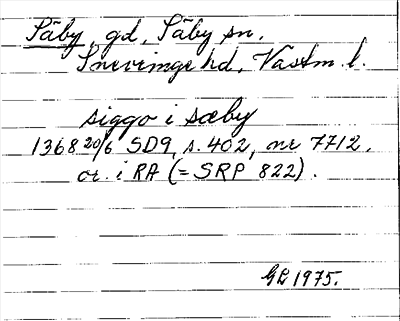 Säby, gd, Säby sn,
Snevringe hd, Västm. l.
siggo i sæby
1368 20/6 SD9, s. 402, nr 7712,
or. i RA (= SRP 822).
GB 1975.